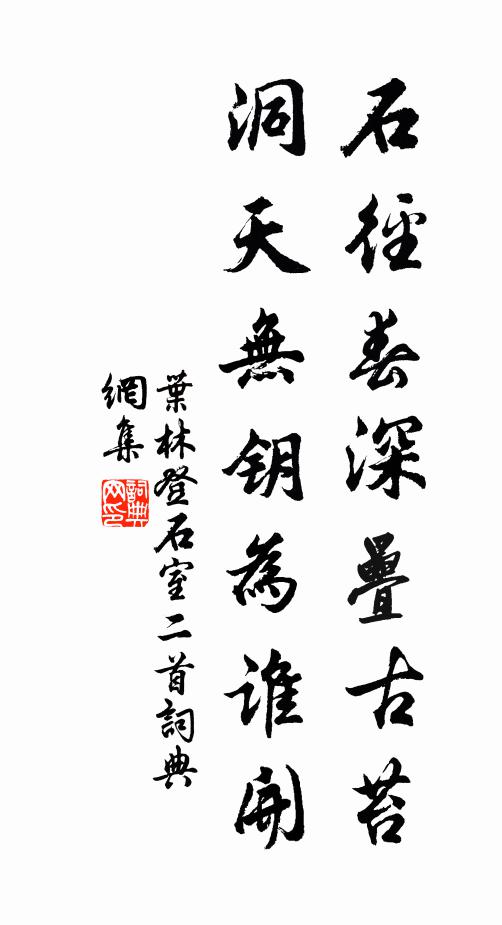 石徑春深疊古苔
洞天無鑰為誰開
葉林登石室二首詞典
網集
詞典網印